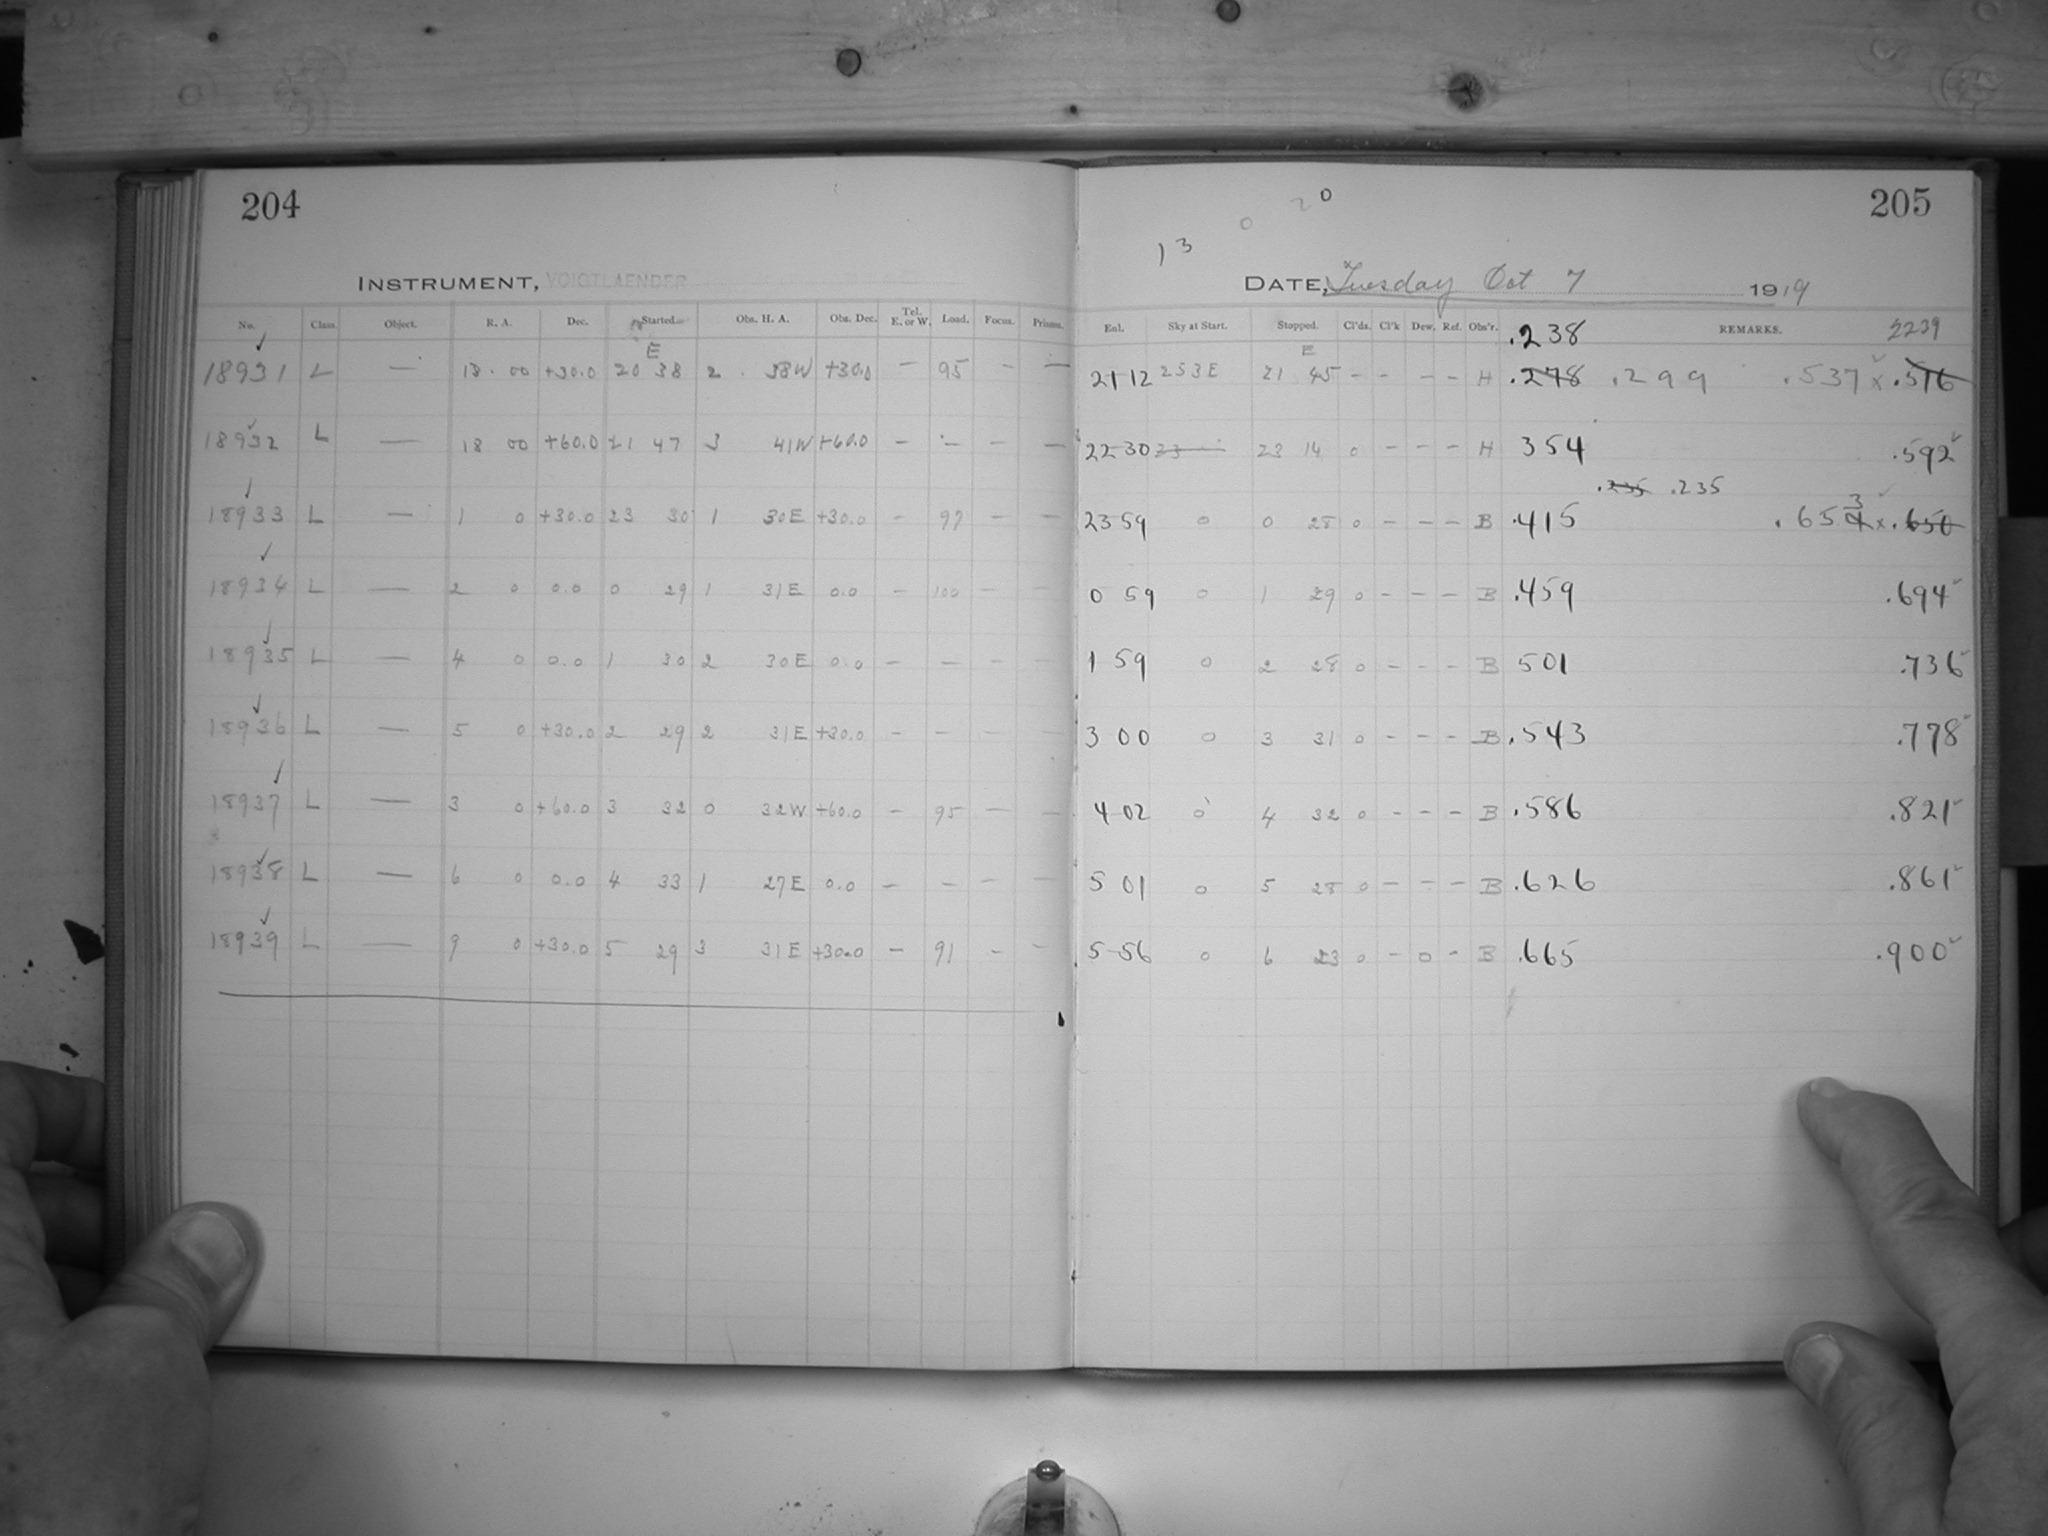 204
INSTRUMENT, VOIGTLAENDER
No. Class. Object. R. A. Dec. Started. Obs. H. A. Obs. Dec. Tel. E. or W. Load. Focus. Prisms.
E
18931 L — 18 00 +30.0 20 38 2 38W +30.0 — 95 — —
18932 L — 18 00 +60.0 21 47 3 41W +60.0 — — — —
18933 L — 1 0 +30.0 23 30 1 30E +30.0 — 97 — —
18934 L — 2 0 0.0 0 29 1 31E 0.0 — 100 — —
18935 L — 4 0 0.0 1 30 2 30E 0.0 — — — —
18936 L — 5 0 +30.0 2 29 2 31E +30.0 — — — —
18937 L — 3 0 +60.0 3 32 0 32W +60.0 — 95 — —
18938 L — 6 0 0.0 4 33 1 27E 0.0 — — — —
18939 L — 9 0 +30.0 5 29 3 31E +30.0 — 91 — —
205
0 20
13
DATE, Tuesday Oct 7 1919
Enl. Sky at Start. Stopped. Cl'ds. Cl'k Dew. Ref. Obs'r. .238 REMARKS. 2239
E
2112 253E 21 45 - - - - H .278 .299 .537 x .516
2230 23 23 14 0 - - - H 354 .592
.235 .235
2359 0 0 28 0 - - - B .415 .654 3 x .650
0 59 0 1 29 0 - - - B .459 .694
1 59 0 2 28 0 - - - B 501 .736
3 00 0 3 31 0 - - - B .543 .778
4 02 0 4 32 0 - - - B .586 .821
5 01 0 5 28 0 - - - B .626 .861
5 56 0 6 23 0 - 0 - B .665 .900